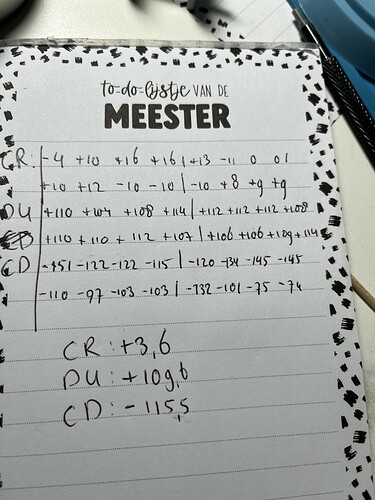 to-do-lijstje VAN DE
MEESTER
CR: -4 +10 +16 +16 | +13 -11 0 0 |
+10 +12 -10 -10 | -10 +8 +9 +9
DU +110 +104 +108 +114 | +112 +112 +112 +108
+110 +110 +112 +107 | +106 +106 +109 +114
CD -151 -122 -122 -115 | -120 -134 -145 -145
-110 -97 -103 -103 | -132 -101 -75 -74
CR: +3,6
DU: +109,6
CD: -115,5